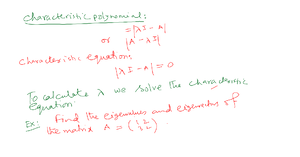 Characteristic polynomial:
= |λI - A|
or |A - λI|
Characteristic equation:
|λI - A| = 0
To calculate λ we solve the characteristic
equation
Ex: Find the eigenvalues and eigenvectors of
the matrix A =